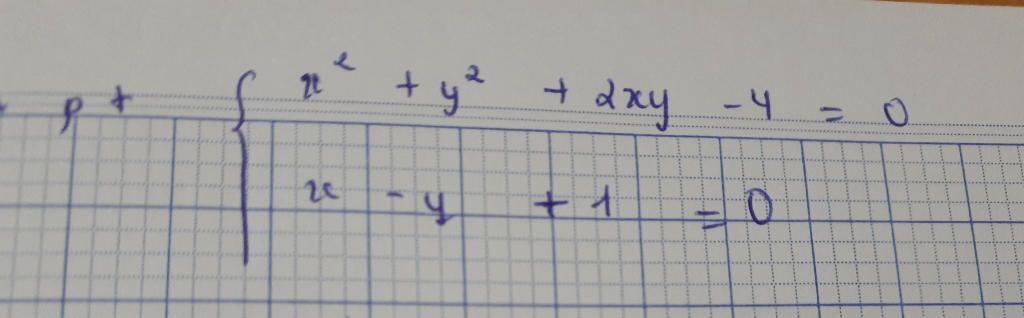 pt { x² + y² + 2xy - 4 = 0
x - y + 1 = 0